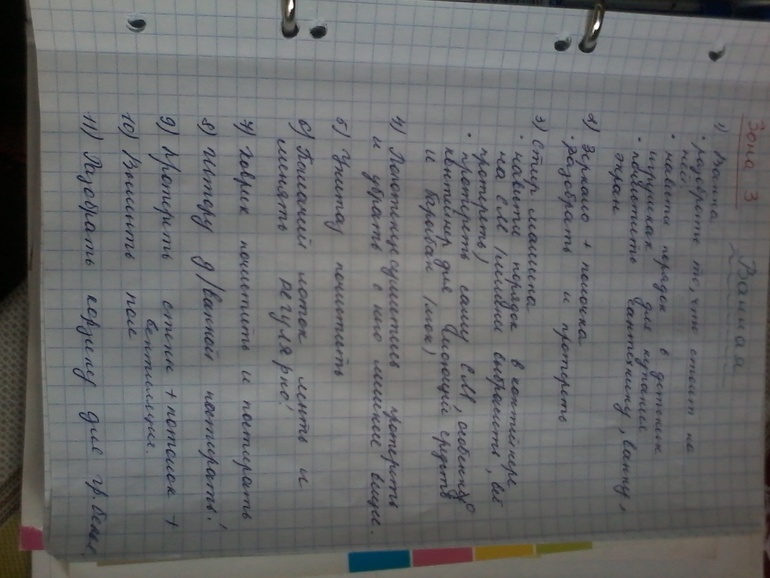 Зона 3 Ванная
1) Ванна
• разобрать то, что стоит на
ней
• навести порядок в детских
игрушках для купания
• почистить сантехнику, ванну,
экран
2) Зеркало + полочка
• разобрать и протереть
3) Стир. машина
• навести порядок в контейнере
на СМ (лишнее выбросить, всё
протереть)
• протереть саму СМ, особенно
контейнер для моющих средств
и барабан (люк)
4) протереть
и убрать с него лишние вещи.
5) Унитаз почистить
6) Кошачий лоток мыть и
менять регулярно!
7) Коврик почистить и постирать
8) Штору д/ванной постирать!
9) Протереть стены + потолок +
вентиляция.
10) Вымыть пол
11) Разобрать корзину для гр. белья.